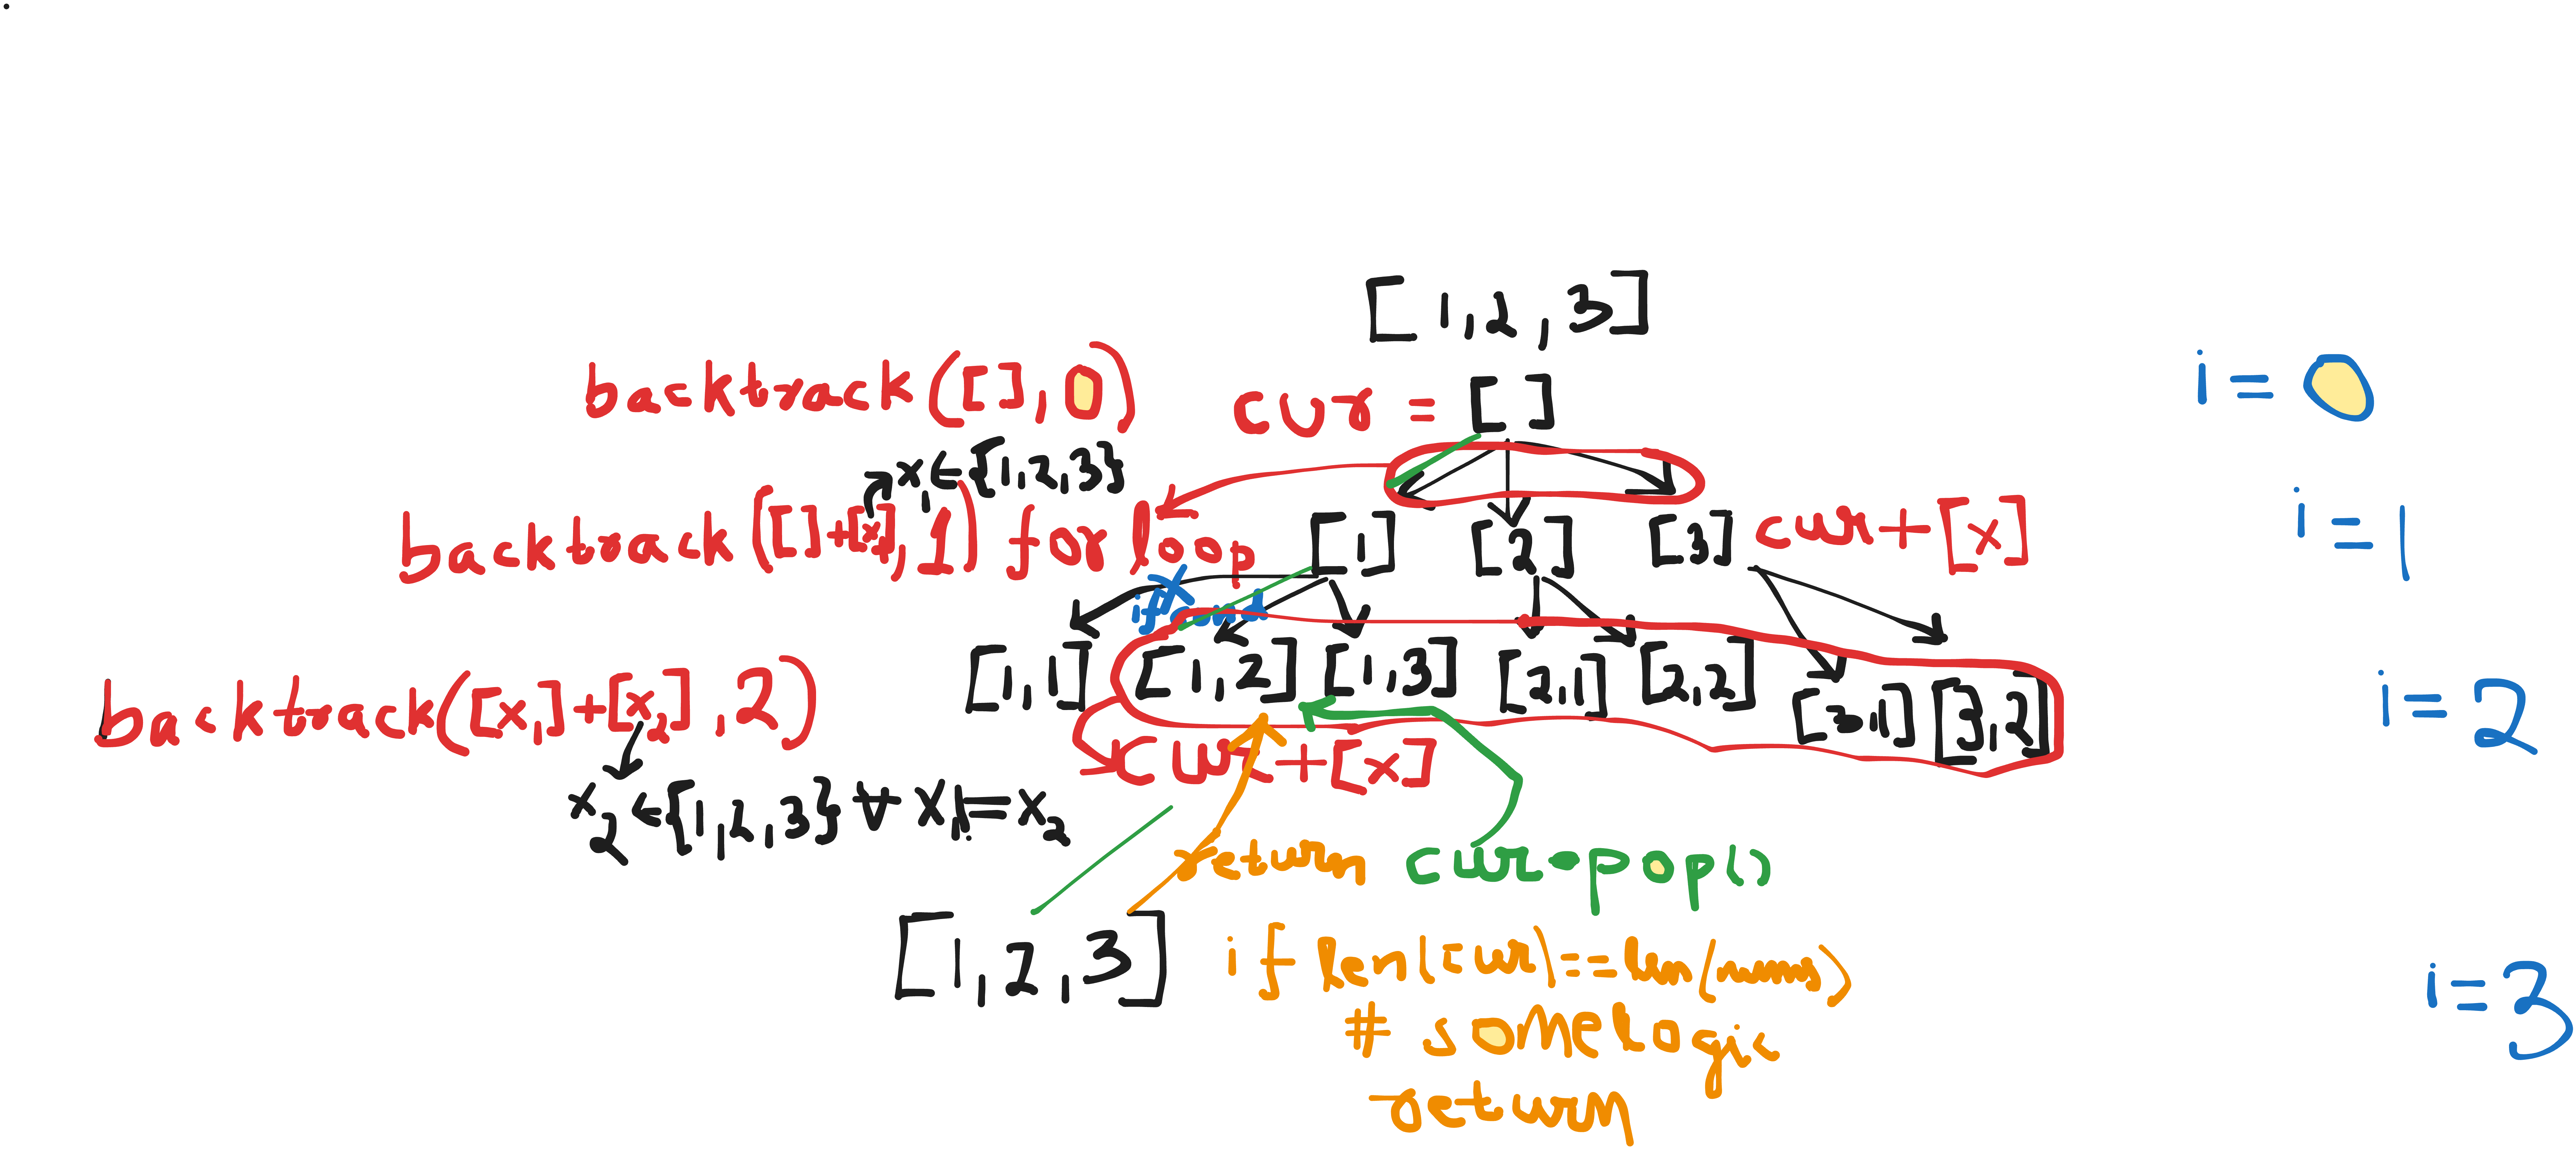 [1,2,3]
backtrack([],0)
cur = []
i=0
x₁∈{1,2,3}
backtrack([]+[x₁],1)
for loop
[1] [2] [3]
cur+[x]
i=1
[1,1] [1,2] [1,3] [2,1] [2,2] [3,1] [3,2]
backtrack([x₁]+[x₂],2)
i=2
cur+[x]
x₂∈{1,2,3} ∀ x₁!=x₂
return
cur.pop()
[1,2,3]
if len(cur)==len(nums)
# some logic
return
i=3